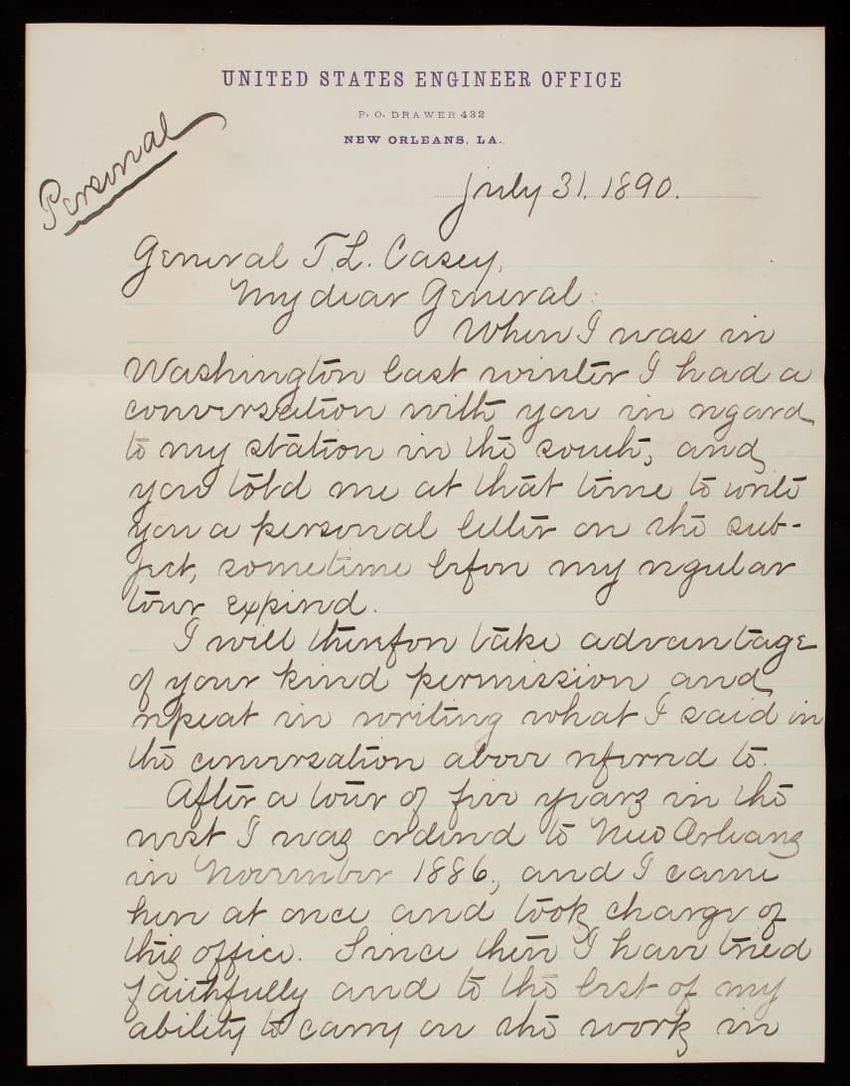 UNITED STATES ENGINEER OFFICE
P. O. DRAWER 432
NEW ORLEANS, LA.
Personal
July 31, 1890.
General T. L. Casey,
My dear General:
When I was in
Washington last winter I had a
conversation with you in regard
to my station in the south, and
you told me at that time to write
you a personal letter on the sub-
ject, sometime before my regular
tour expired.
I will therefore take advantage
of your kind permission and
repeat in writing what I said in
the conversation above referred to.
After a tour of five years in the
west I was ordered to New Orleans
in November 1886, and I came
here at once and took charge of
this office. Since then I have tried
faithfully and to the best of my
ability to carry on the work in